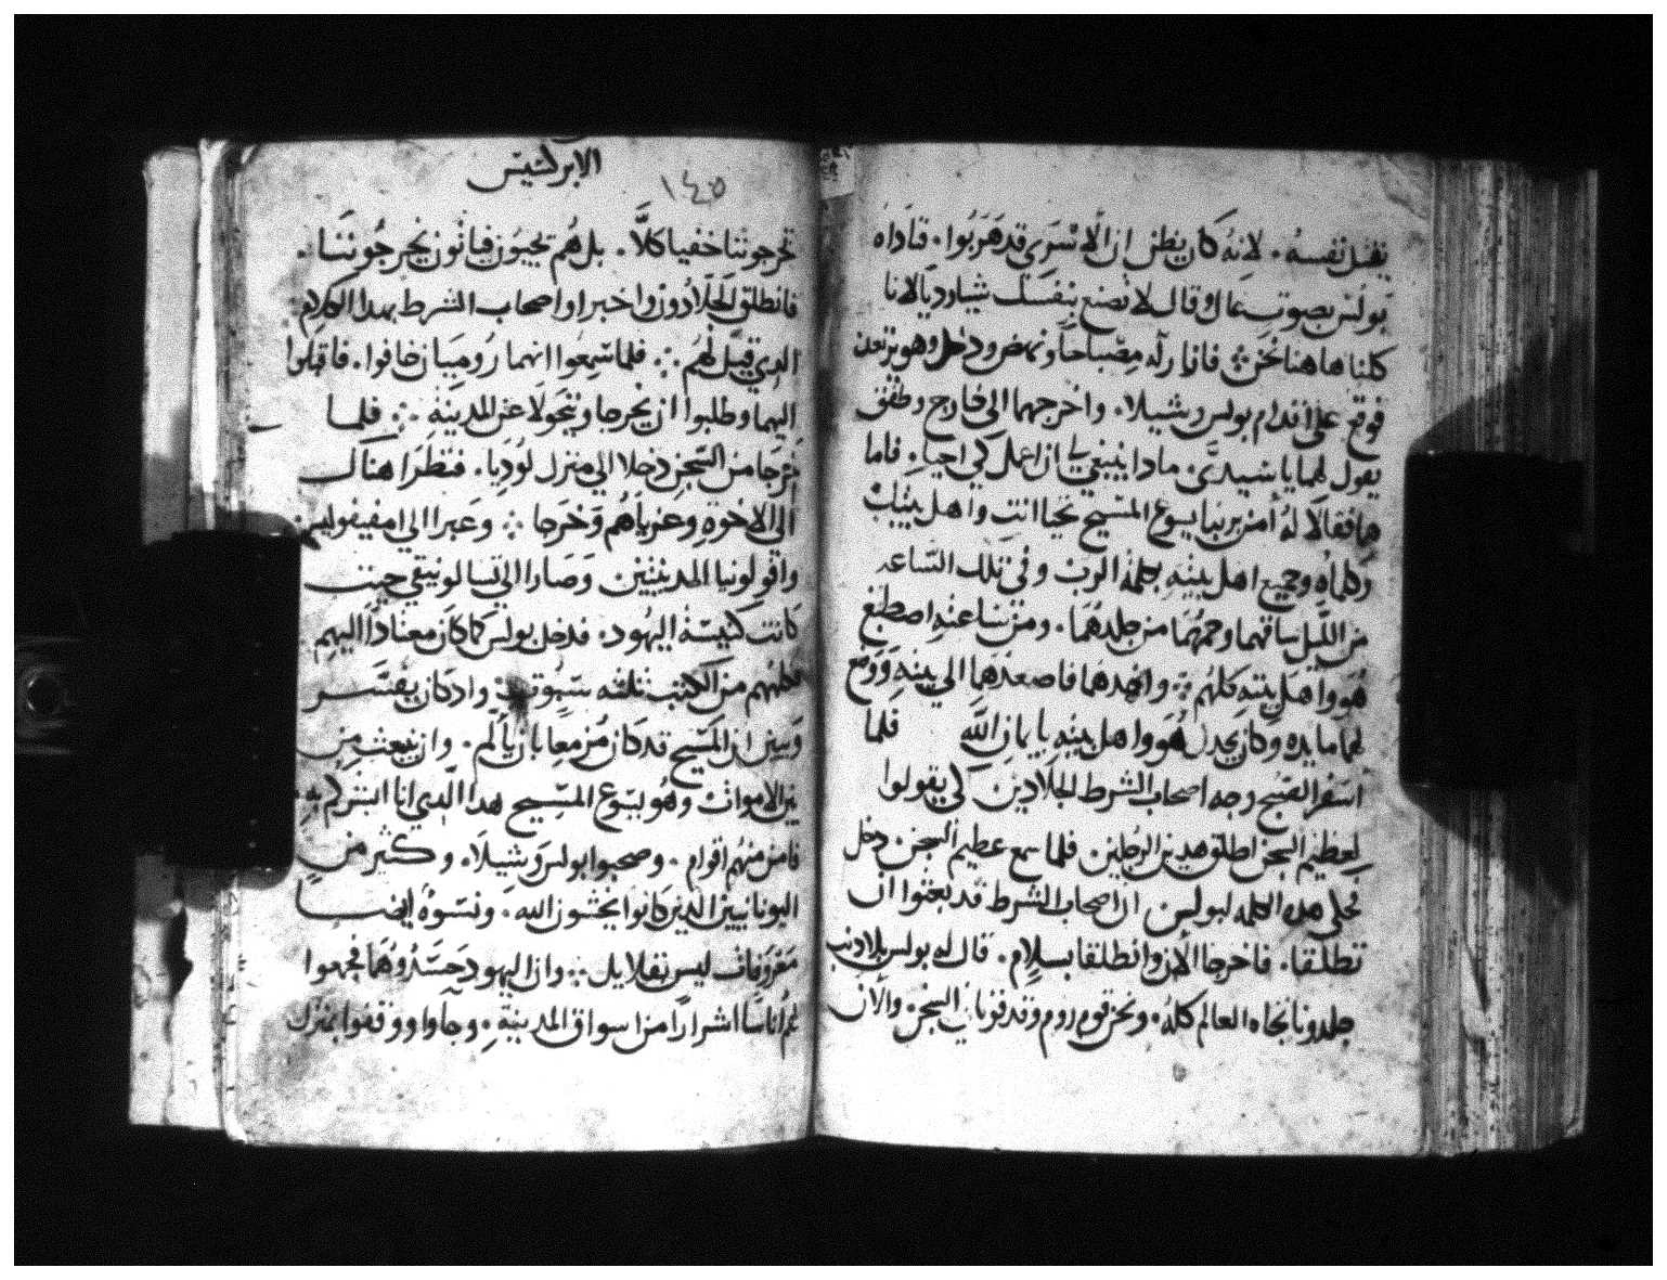 يقتل نفسه. لانه كان يظن ان الاسرى قد هربوا. فناداه
بولس بصوت عال وقال لا تصنع بنفسك شيا رديا لانا
كلنا هاهنا نحن ⁘ فانار له مصباحا ونهض ودخل وهو يرتعد
فوقع على اقدام بولس وشيلا. واخرجهما الى خارج وطفق
يقول لهما يا سيدي. مادا ينبغي لي ان اعمل كي احيا. فاما
هما فقالا له امن بربنا يسوع المسيح تحيا انت واهل بيتك
وكلماه وجميع اهل بيته بكلمة الرب وفي تلك الساعه
من الليل ساقهما وحمهما من جلدهما. ومن ساعته اصطبغ
هو واهل بيته كلهم ⁘ واخدهما فاصعدهما الى بيته ووضع
لهما مايده وكان يجدل هو واهل بيته بايمان الله فلما
اسفر الصبح وجه اصحاب الشرط الجلادين كي يقولوا
لعظيم السجن اطلق هدين الرجلين. فلما سمع عظيم السجن دخل
فحلى هده الكلمه لبولس ان اصحاب الشرط قد بعثوا ان
تطلقا. فاخرجا الان وانطلقا بسلام. قال له بولس بلا دنب
جلدونا تجاه العالم كله. ونحن قوم روم وقدفونا في السجن والان
الابركسيس
١٤٥
تخرجوننا خفيا كلا. بل هم يجيون فياتون يخرجوننا.
فانطلق الجلادون واخبراوا اصحاب الشرط بهدا الكلام
الدي قيل لهم ⁘ فلما سمعوا انهما روميان خافوا. فاقبلوا
اليهما وطلبوا ان يخرجا ويتحولا عن المدينة ⁘ فلما
خرجا من السجن دخلا الى منزل لوديا. فنظرا هناك
الى الاخوة وعزياهم وخرجا ⁘ وعبرا الي امفيفوليس
وافولونيا المدينتين وصارا الى تسالونيقي حيت
كانت كنيسة اليهود. فدخل بولس كما كان معتادا اليهم
فكلمهم من الكتب ثلثه سبوت وادكان يفسر
ويبين ان المسيح قد كان مزمعا بان يالم. وان يبعث من
بين الاموات وهو يسوع المسيح هدا الدي انا ابشركم به.
فامن منهم اقوام. وصحبوا بولس وشيلا. وكثير من
اليونانيين الدين كانوا يخشون الله. ونسوه ايضا
معروفات ليس بقلايل ⁘ وان اليهود حسدوهما فجمعوا
لهم اناسا اشرارا من اسواق المدينة. وجاوا ووقفوا بمنزل